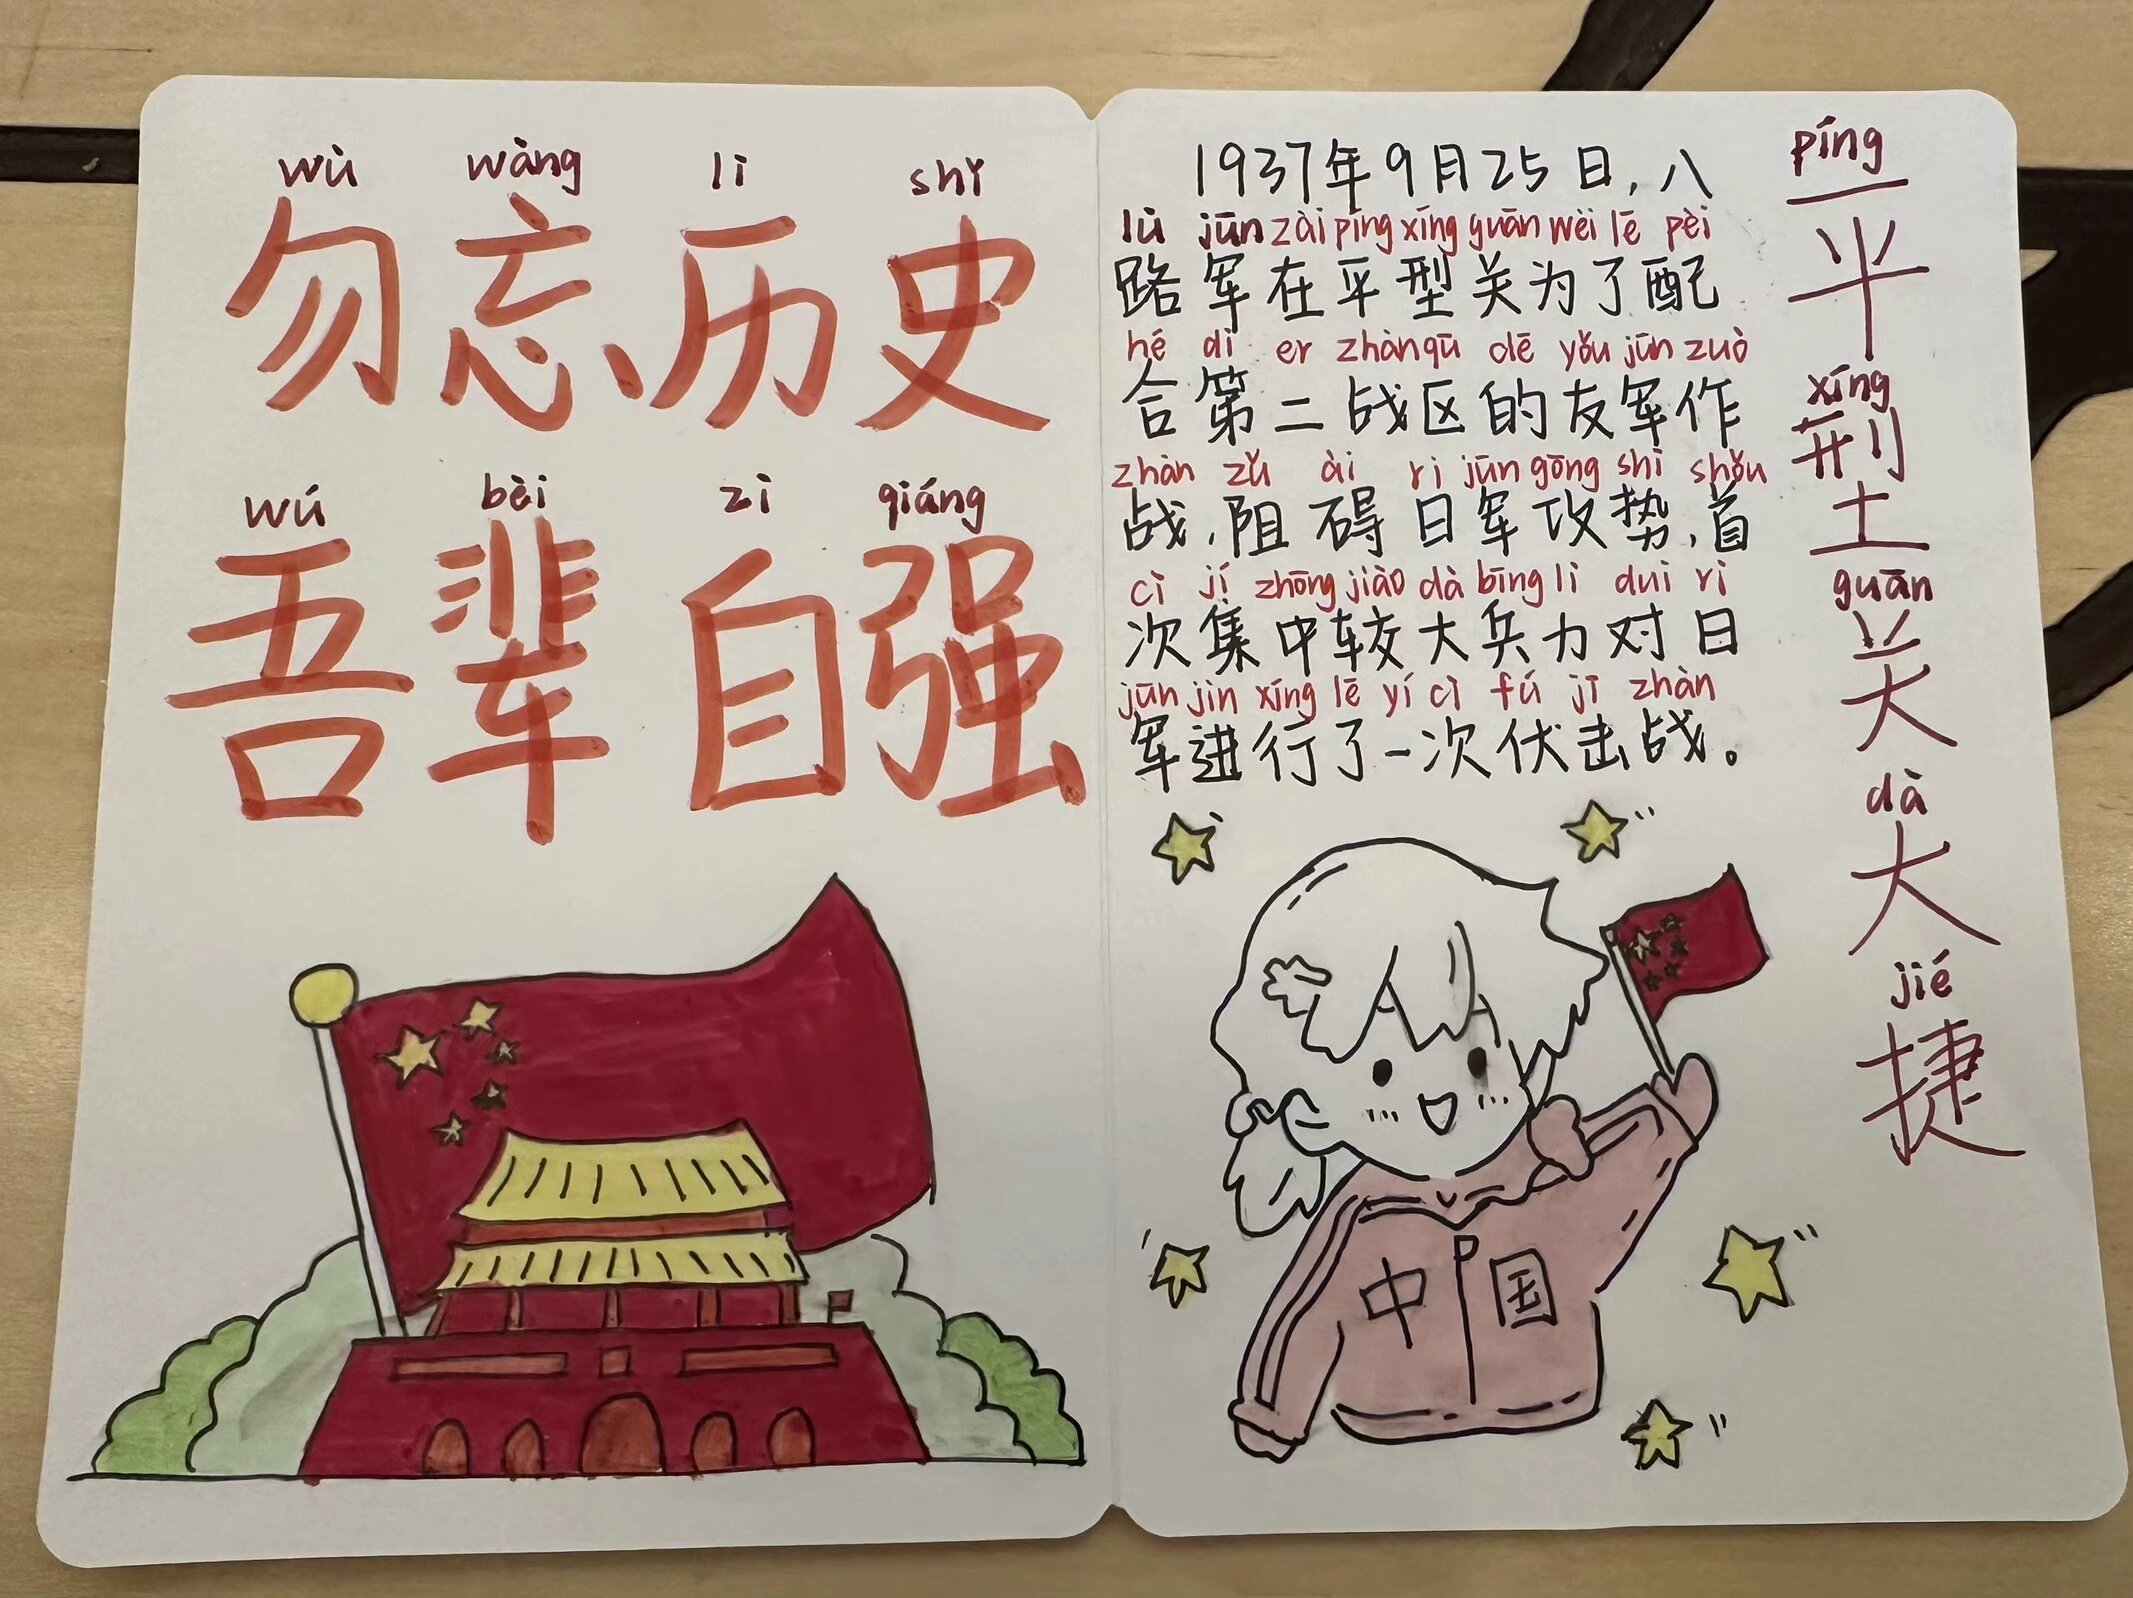 wù wàng lì shǐ
勿忘历史
wú bèi zì qiáng
吾辈自强
píng
平
xíng
型
guān
关
dà
大
jié
捷
1937年9月25日,八
lù jūn zài píng xíng guān wèi lē pèi
路军在平型关为了配
hé dì èr zhàn qū dē yǒu jūn zuò
合第二战区的友军作
zhàn zǔ ài rì jūn gōng shì shǒu
战,阻碍日军攻势,首
cì jí zhōng jiào dà bīng lì duì rì
次集中较大兵力对日
jūn jìn xíng lē yí cì fú jī zhàn
军进行了一次伏击战。
中国